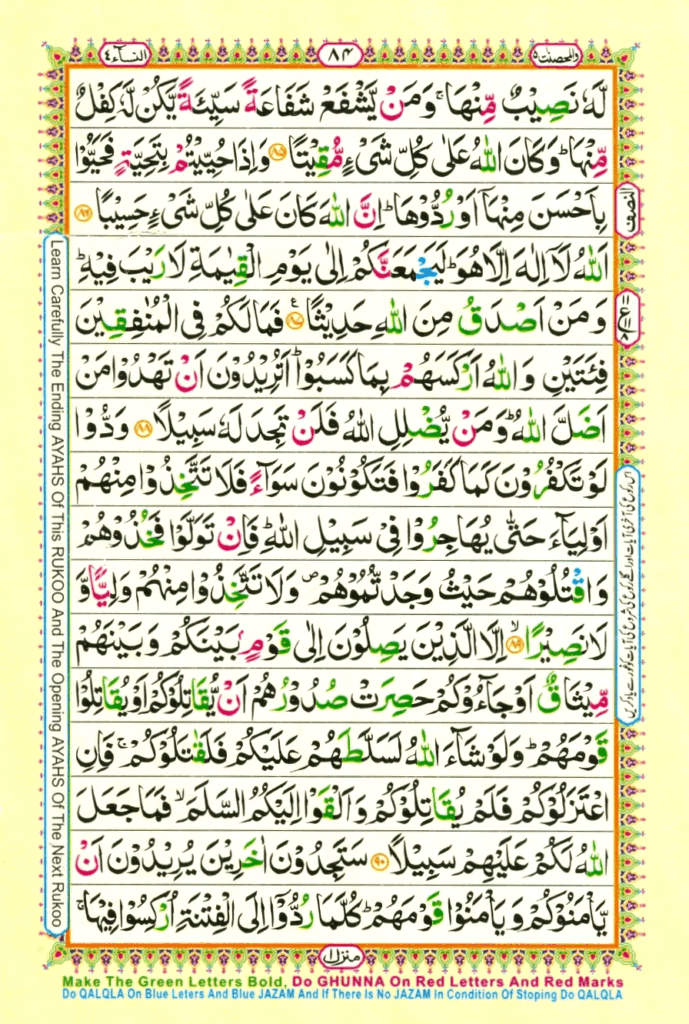 والمحصنت ٥
٨٤
النسآء ٤
لَّهٗ نَصِيْبٌ مِّنْهَا ۚ وَمَنْ يَّشْفَعْ شَفَاعَةً سَيِّئَةً يَّكُنْ لَّهٗ كِفْلٌ
مِّنْهَا ؕ وَكَانَ اللّٰهُ عَلٰى كُلِّ شَىْءٍ مُّقِيْتًا ﴿٨٥﴾ وَاِذَا حُيِّيْتُمْ بِتَحِيَّةٍ فَحَيُّوْا
بِاَحْسَنَ مِنْهَاۤ اَوْ رُدُّوْهَا ؕ اِنَّ اللّٰهَ كَانَ عَلٰى كُلِّ شَىْءٍ حَسِيْبًا ﴿٨٦﴾
اَللّٰهُ لَاۤ اِلٰهَ اِلَّا هُوَ ؕ لَيَجْمَعَنَّكُمْ اِلٰى يَوْمِ الْقِيٰمَةِ لَا رَيْبَ فِيْهِ ؕ
وَمَنْ اَصْدَقُ مِنَ اللّٰهِ حَدِيْثًا ﴿٨٧﴾ ع فَمَا لَكُمْ فِى الْمُنٰفِقِيْنَ
فِئَتَيْنِ وَاللّٰهُ اَرْكَسَهُمْ بِمَا كَسَبُوْا ؕ اَتُرِيْدُوْنَ اَنْ تَهْدُوْا مَنْ
اَضَلَّ اللّٰهُ ؕ وَمَنْ يُّضْلِلِ اللّٰهُ فَلَنْ تَجِدَ لَهٗ سَبِيْلًا ﴿٨٨﴾ وَدُّوْا
لَوْ تَكْفُرُوْنَ كَمَا كَفَرُوْا فَتَكُوْنُوْنَ سَوَآءً فَلَا تَتَّخِذُوْا مِنْهُمْ
اَوْلِيَآءَ حَتّٰى يُهَاجِرُوْا فِىْ سَبِيْلِ اللّٰهِ ؕ فَاِنْ تَوَلَّوْا فَخُذُوْهُمْ
وَاقْتُلُوْهُمْ حَيْثُ وَجَدْتُّمُوْهُمْ ۪ وَلَا تَتَّخِذُوْا مِنْهُمْ وَلِيًّا وَّ
لَا نَصِيْرًا ﴿٨٩﴾ ۙ اِلَّا الَّذِيْنَ يَصِلُوْنَ اِلٰى قَوْمٍۭ بَيْنَكُمْ وَبَيْنَهُمْ
مِّيْثَاقٌ اَوْ جَآءُوْكُمْ حَصِرَتْ صُدُوْرُهُمْ اَنْ يُّقَاتِلُوْكُمْ اَوْ يُقَاتِلُوْا
قَوْمَهُمْ ؕ وَلَوْ شَآءَ اللّٰهُ لَسَلَّطَهُمْ عَلَيْكُمْ فَلَقٰتَلُوْكُمْ ۚ فَاِنِ
اعْتَزَلُوْكُمْ فَلَمْ يُقَاتِلُوْكُمْ وَاَلْقَوْا اِلَيْكُمُ السَّلَمَ ۙ فَمَا جَعَلَ
اللّٰهُ لَكُمْ عَلَيْهِمْ سَبِيْلًا ﴿٩٠﴾ سَتَجِدُوْنَ اٰخَرِيْنَ يُرِيْدُوْنَ اَنْ
يَّاْمَنُوْكُمْ وَيَاْمَنُوْا قَوْمَهُمْ ؕ كُلَّمَا رُدُّوْۤا اِلَى الْفِتْنَةِ اُرْكِسُوْا فِيْهَا ۚ
النصف
منزل ١
Learn Carefully The Ending AYAHS Of This RUKOO And The Opening AYAHS Of The Next Rukoo
Make The Green Letters Bold, Do GHUNNA On Red Letters And Red Marks
Do QALQLA On Blue Leters And Blue JAZAM And If There Is No JAZAM In Condition Of Stoping Do QALQLA